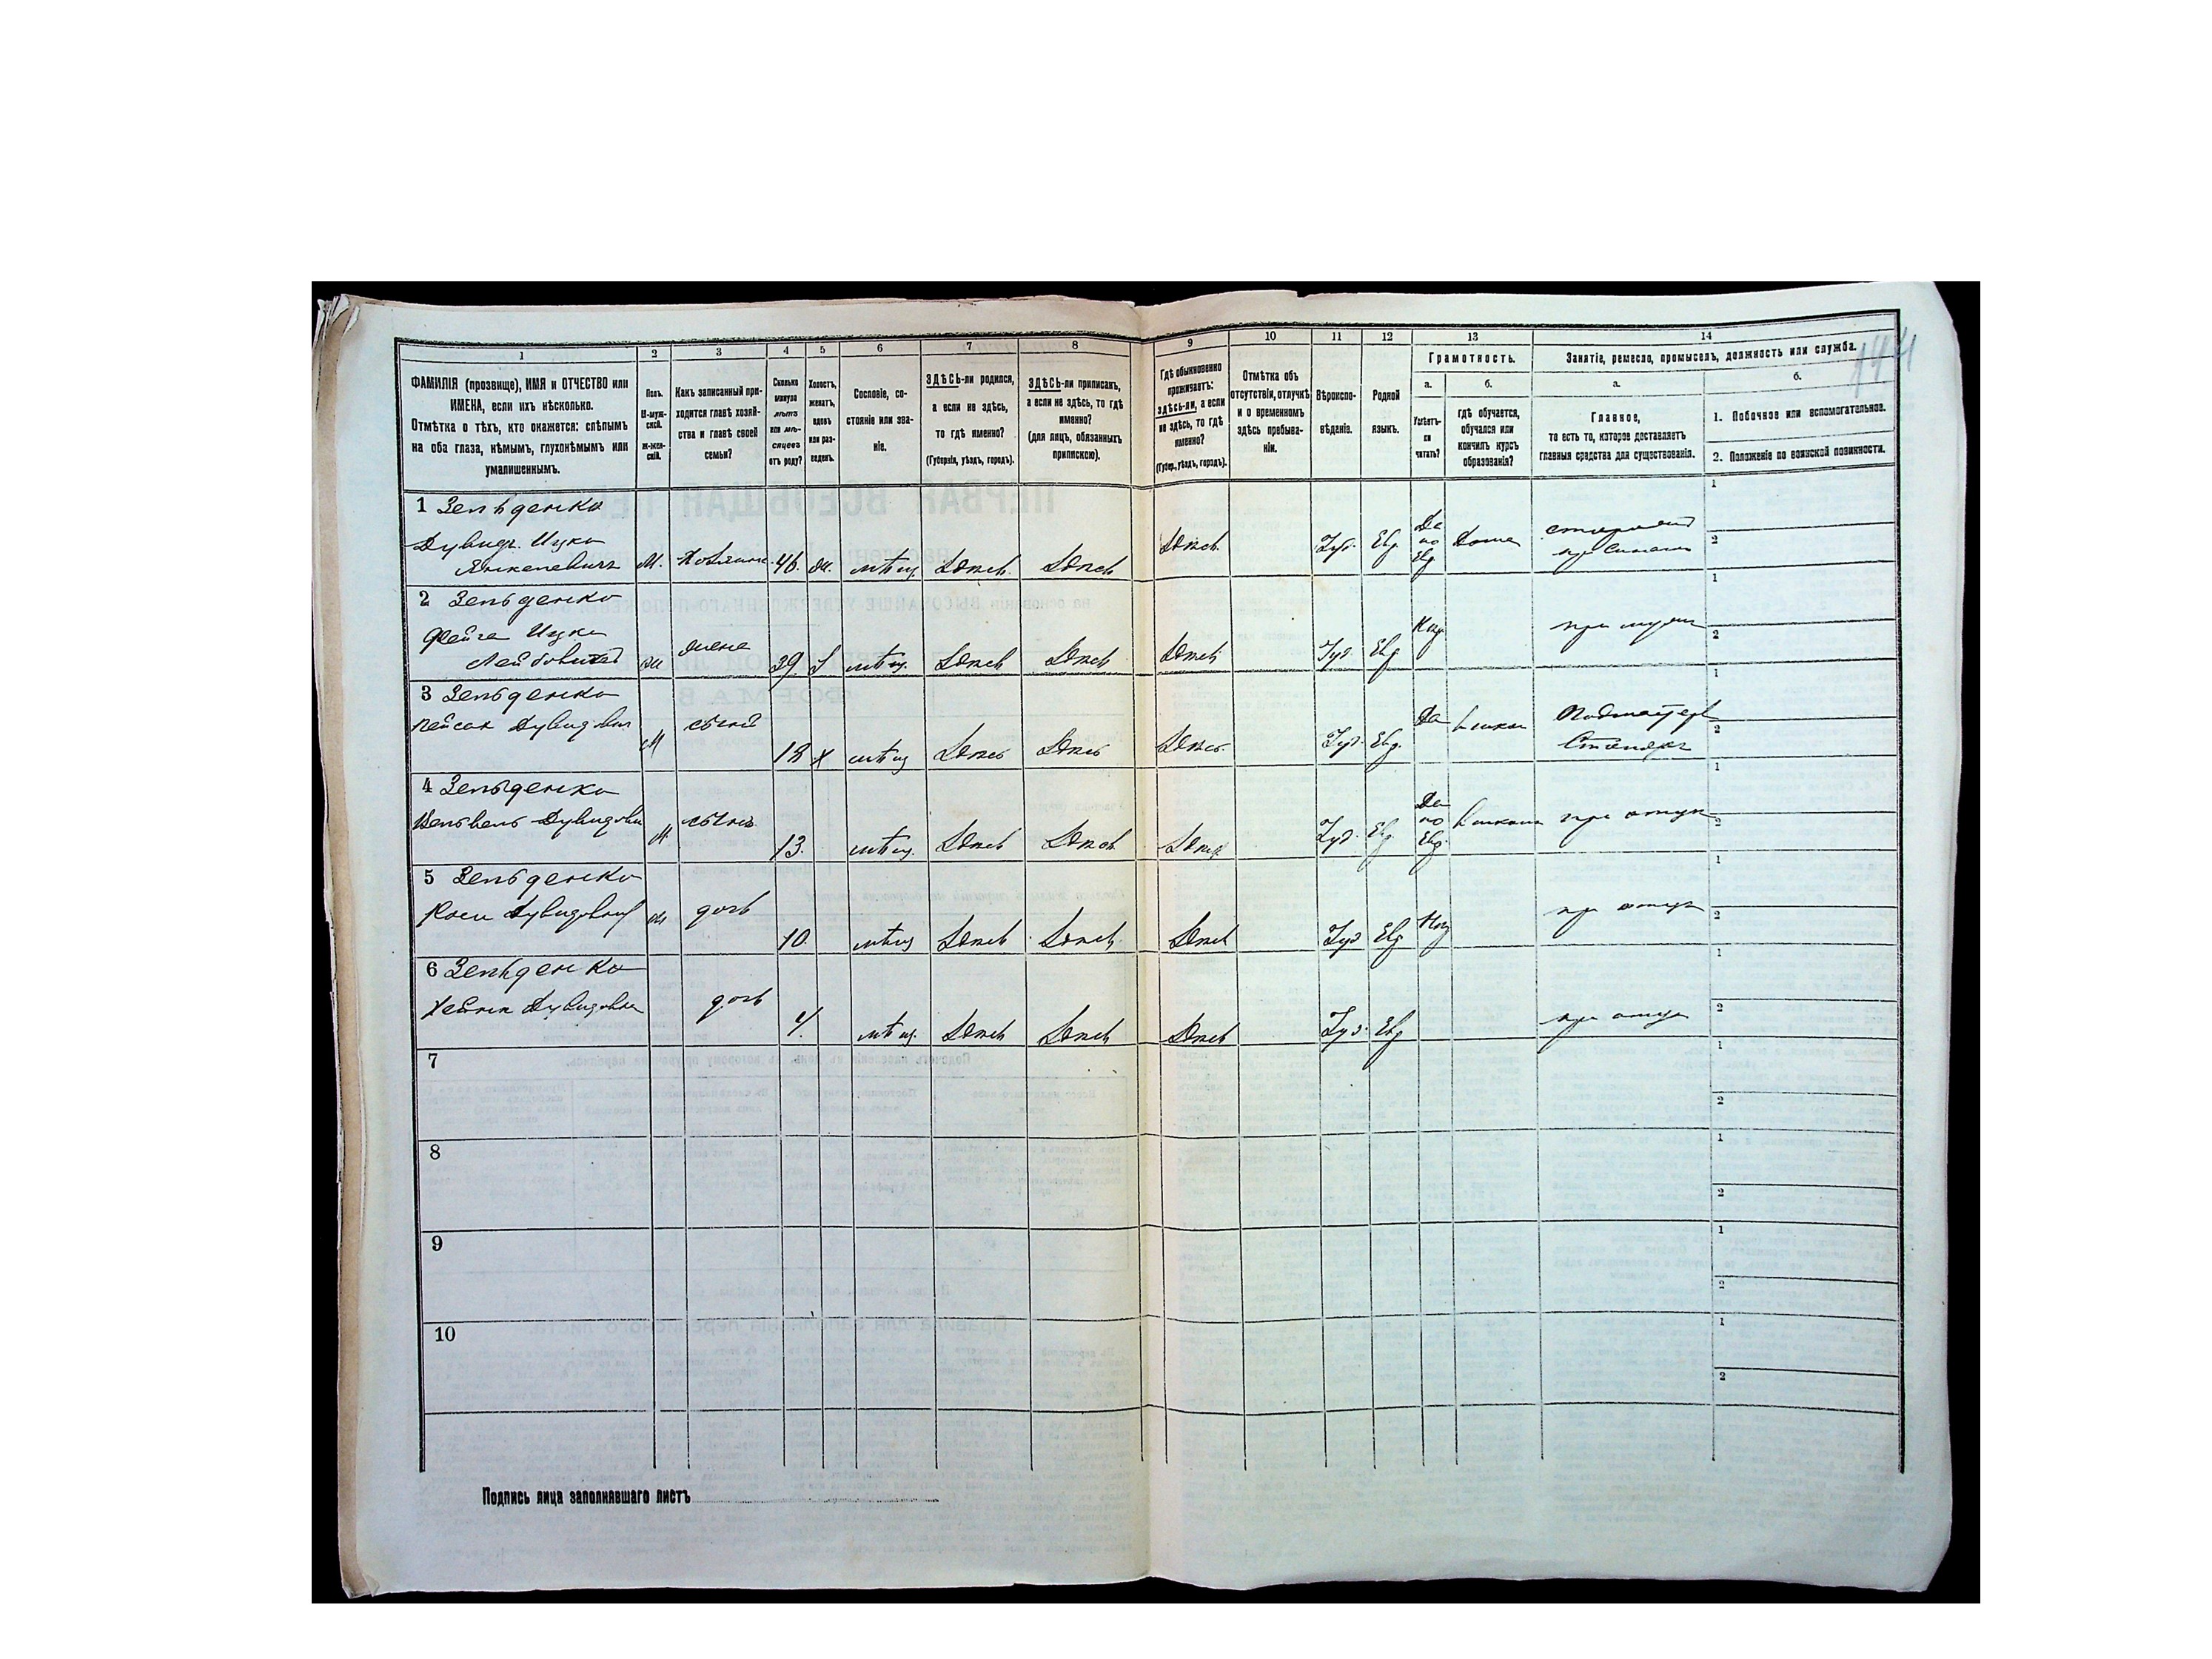 1 2 3 4 5 6 7 8 9 10 11 12 13 14
ФАМИЛІЯ (прозвище), ИМЯ и ОТЧЕСТВО или
ИМЕНА, если ихъ нѣсколько.
Отмѣтка о тѣхъ, кто окажется: слѣпымъ
на оба глаза, нѣмымъ, глухонѣмымъ или
умалишеннымъ.
Полъ.
М-муж-
ской.
Ж-жен-
скій.
Какъ записанный при-
ходится главѣ хозяй-
ства и главѣ своей
семьи?
Сколько
минуло
лѣтъ
или мѣ-
сяцевъ
отъ роду?
Холостъ,
женатъ,
вдовъ
или раз-
веденъ.
Сословіе, со-
стояніе или зва-
ніе.
ЗДѢСЬ-ли родился,
а если не здѣсь,
то гдѣ именно?
(Губернія, уѣздъ, городъ).
ЗДѢСЬ-ли приписанъ,
а если не здѣсь, то гдѣ
именно?
(для лицъ, обязанныхъ
припискою).
Гдѣ обыкновенно
проживаетъ:
здѣсь-ли, а если
не здѣсь, то гдѣ
именно?
(Губер., уѣздъ, городъ).
Отмѣтка объ
отсутствіи, отлучкѣ
и о временномъ
здѣсь пребыва-
ніи.
Вѣроиспо-
вѣданіе.
Родной
языкъ.
Грамотность.
а.
Умѣетъ-
ли
читать?
б.
гдѣ обучается,
обучался или
кончилъ курсъ
образованія?
Занятіе, ремесло, промыселъ, должность или служба.
а.
Главное,
то есть то, которое доставляетъ
главныя средства для существованія.
б.
1. Побочное или вспомогательное.
2. Положеніе по воинской повинности.
1 Зельденко
Дувидъ Ицко
Янкелевичъ М. Хозяинъ 46. ж. мѣщ. Здѣсь Здѣсь Здѣсь Іуд. Евр. Да по Евр. Дома
1
2
2 Зельденко
Фейга Ицко
Лейбовна ж жена 39. з мѣщ. Здѣсь Здѣсь Здѣсь Іуд. Евр при мужѣ
1
2
3 Зельденко
Пейсах Дувидович М сынъ 18 х мѣщ Здѣсь Здѣсь Здѣсь Іуд. Евр. Да Подмастерь
Столяръ
1
2
4 Зельденко
Вельвель Дувидови М сынъ 13. мѣщ. Здѣсь Здѣсь Здѣсь Іуд. Евр Да по Евр. при отцѣ
1
2
5 Зельденко
Дувидовна ж дочь 10. мѣщ Здѣсь Здѣсь Здѣсь Іуд Евр при отцѣ
1
2
6 Зельденко
Дувидовна дочь 4. мѣщ. Здѣсь Здѣсь Здѣсь Іуд. Евр при отцѣ
1
2
7
1
2
8
1
2
9
1
2
10
1
2
Подпись лица заполнявшаго листъ